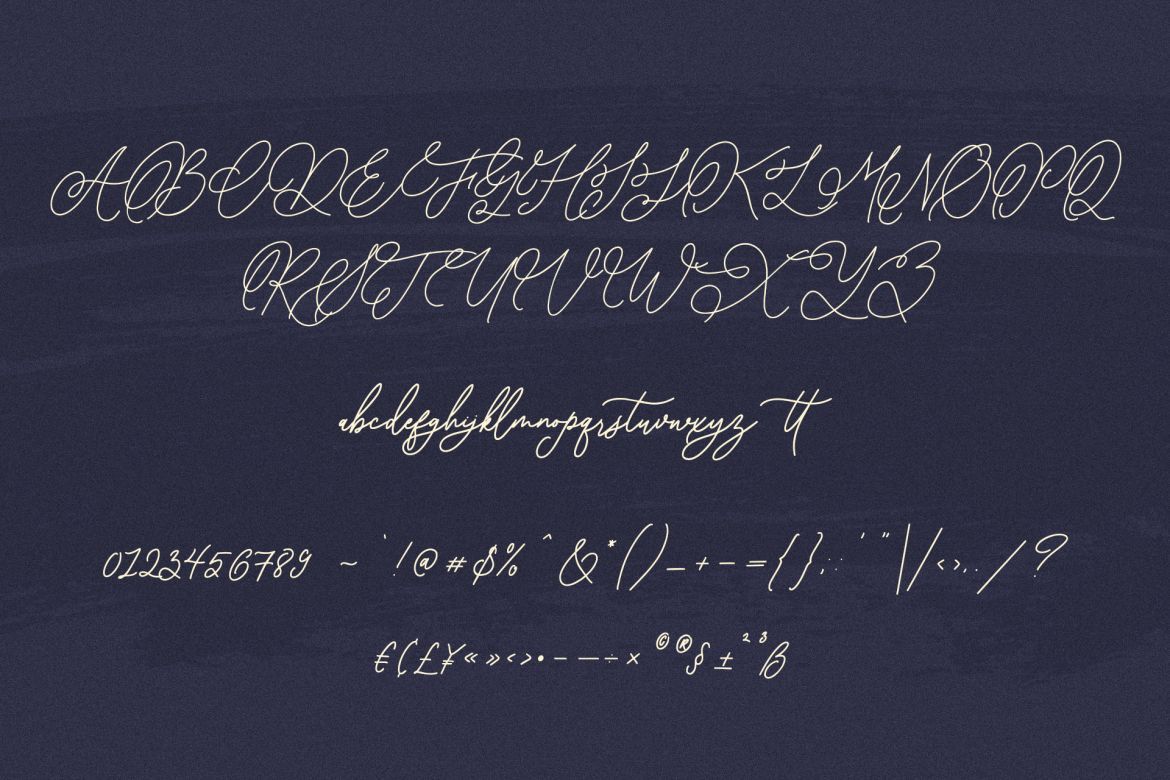 ABCDEFGHIJKLMNOPQ
RSTUVWXYZ
abcdefghijklmnopqrstuvwxyz tt
0123456789 ~ ` ! @ # $ % ^ & * ( ) _ + - = { } ; : ' " | / < > , . / ?
€ ₵ £ ¥ « » ‹ › • – — ÷ × © ® § ± ² ³ ß